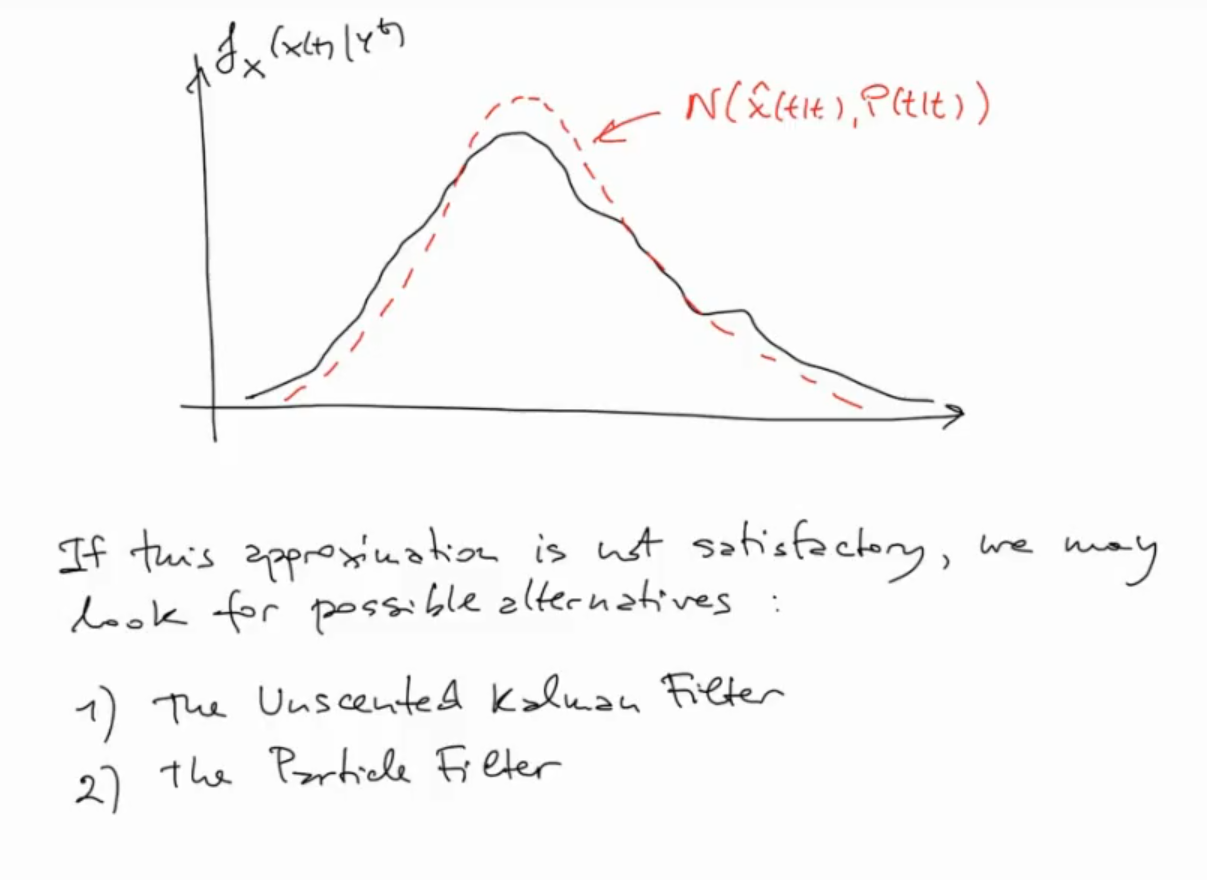 f_X(x(t)|y^t)
N(x̂(t|t), P(t|t))
If this approximation is not satisfactory, we may
look for possible alternatives :
1) The Unscented Kalman Filter
2) The Particle Filter